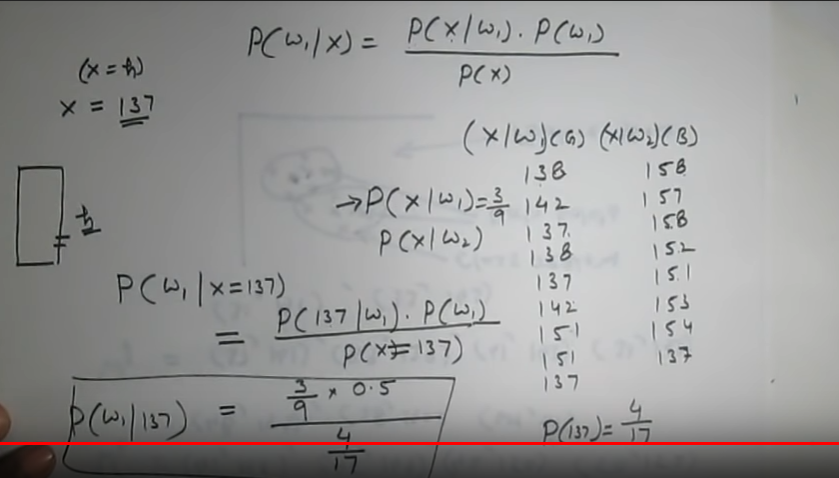 P(ω₁|x) = P(x|ω₁) · P(ω₁) / P(x)
(x = h)
x = 137
(x|ω₁)(G) (x|ω₂)(B)
138 158
→ P(x|ω₁) = 3/9 142 157
P(x|ω₂) 137 158
138 152
137 151
142 153
151 154
151 137
137
h
P(ω₁|x=137)
= P(137|ω₁) · P(ω₁) / P(x=137)
P(ω₁|137) = 3/9 × 0.5 / 4/17
P(137) = 4/17